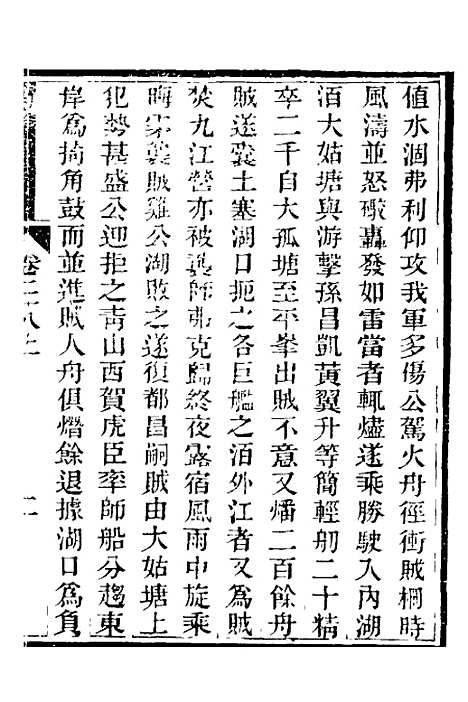 值水涸弗利仰攻我軍多傷公駕火舟徑衝賊棚時
風濤並怒礮轟發如雷當者輒燼遂乘勝駛入內湖
泊大姑塘與游擊孫昌凱黃翼升等簡輕舠二十精
卒二千自大孤塘至平峯出賊不意又燔二百餘舟
賊遂囊土塞湖口扼之各巨艦之泊外江者又為賊
焚九江營亦被襲師弗克歸終夜露宿風雨中旋乘
晦來襲賊雞公湖敗之遂復都昌嗣賊由大姑塘上
犯勢甚盛公迎拒之靑山西賀虎臣率師船分趨東
岸爲掎角鼓而並進賊人舟俱熸餘退據湖口爲負
卷二八上
二